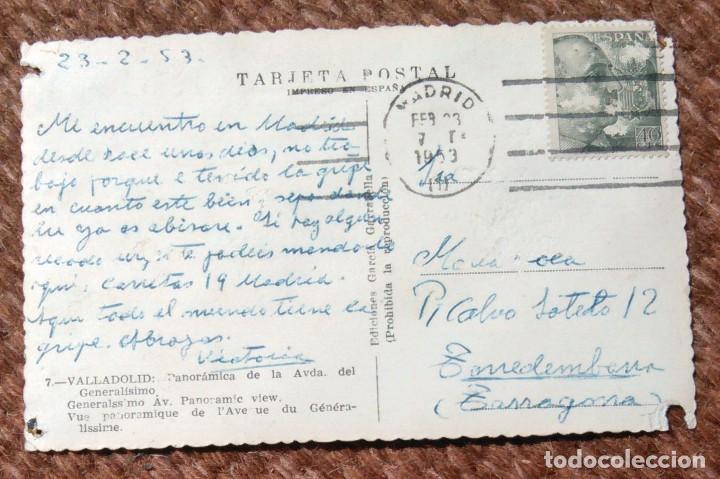 23-2-53.
TARJETA POSTAL
IMPRESO EN ESPAÑA
ESPAÑA
40
MADRID
FEB 23
7 T
1953
Me encuentro en Madrid
desde unos dias, no tra
bajo porque e tenido la gripe
en cuanto este bien
ya os abisare. Si hay algun
recado te podeis mandar
aqui. Carretas 19 Madrid.
Aqui todo el mundo tiene la
gripe. Abrazos.
Victoria
7.—VALLADOLID: Panorámica de la Avda. del
Generalísimo
Generalssmo Av. Panoramic view.
Vue panoramique de l'Ave ue du Généra-
lissime.
Ediciones García Garrabella
(Prohibida la reproducción)
Sra
Maria
P. Calvo Sotelo 12
Torredembarra
(Tarragona)
todocoleccion.net